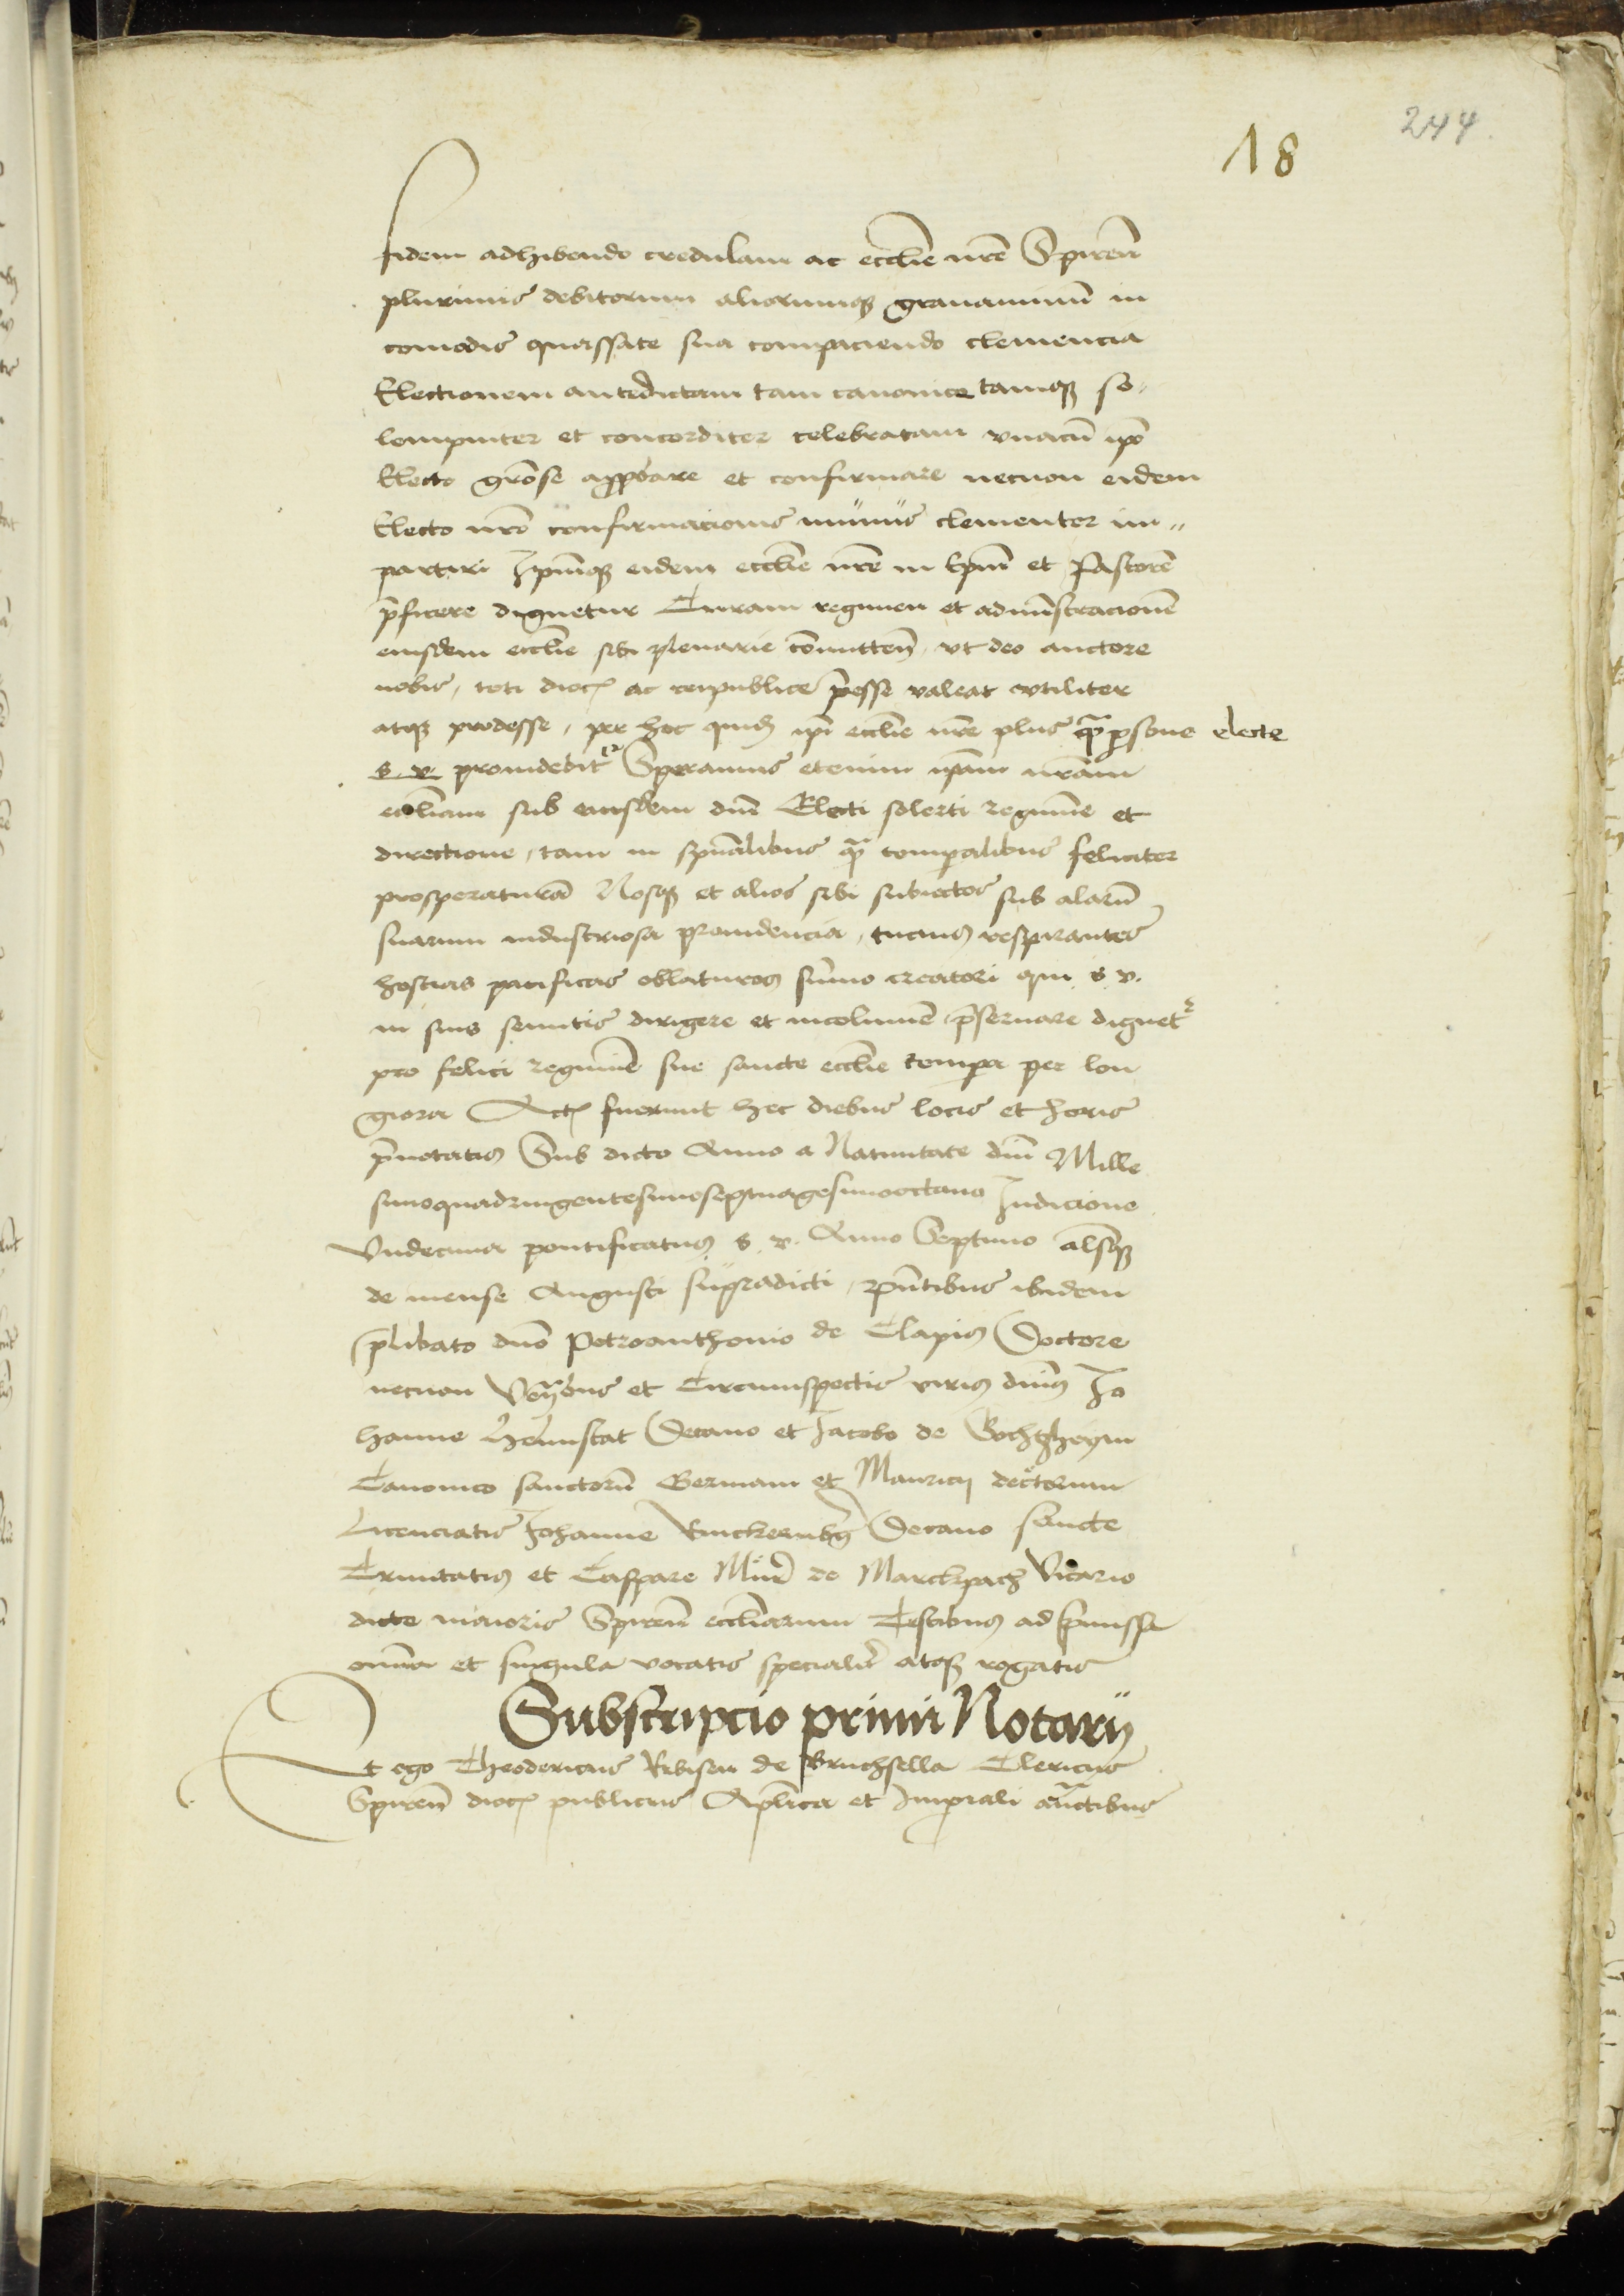 244
18
fidem adhibendo credulam ac ecclīe nr̄e Spireñ
plurimis debitorum aliorumqꝫ grauaminū in
comodis quassate sua compaciendo clemencia
Electionem antedictam tam canonice tamqꝫ so⸗
lempniter et concorditer celebratam vnacū ip̄o
Electo gr̄ose app̄bare et confirmare necnon eidem
Electo nr̄o confirmacionis munus clementer im⸗
partiri Ip̄umqꝫ eidem ecclīe nr̄e in Ep̄um et Pastorē
p̄ficere dignetur Curam regimen et administracionē
eiusdem ecclīe sibi plenarie cōmitteñ, vt deo auctore
nobis, toti dioc̄ ac reipublice p̄esse valeat vtiliter
atqꝫ prodesse, per hoc quid̄ ip̄i ecclīe nr̄e plus qͣ persone electe
s. v. prouidebit Speramus etenim ip̄am nr̄am
eccl̄iam sub eiusdem dn̄i Electi solerti regimine et
directione, tam in sp̄ualibus qͣ temporalibus feliciter
prosperaturā Nosqꝫ et alios sibi subiectos sub alarū
suarum industriosa prouidencia, tucius respirantes
hostias pacificas oblaturos sūmo creatori qui s. v.
in suis semitis dirigere et incolumē p̄seruare dignetr
pro felici regimine sue sancte ecclīe tempora per lon
giora Actꝫ fuerunt hec diebus locis et horis
p̄notatis Sub dicto Anno a Natiuitate dn̄i Mille
simoquadringentesimoseptuagesimooctauo Indicione
Vndecima pontificatus s. v. Anno Septimo alsqꝫ
de mense Augusti supradicti, pn̄tibus ibidem
p̄libato dn̄o Petroanthonio de Clapis Doctore
necnon Ven̄bus et Circumspectis viris dn̄is Jo
hanne Hemstat Decano et Jacobo de Gochtzheym
Canonico sanctorū Germani et Mauricij decretorum
Licenciatis Johanne Decano sancte
Trinitatis et Caspare Mür de Marckpach Vicario
dicte maioris Spireñ eccl̄iarum Testibus ad p̄missa
omnia et singula vocatis specialiter atqꝫ rogatis
Subscripcio primi Notarij
Et ego Theodericus Rebisen de Bruchsella Clericus
Spireñ dioc̄ publicus Apl̄ica et Imperiali auctͣtibus